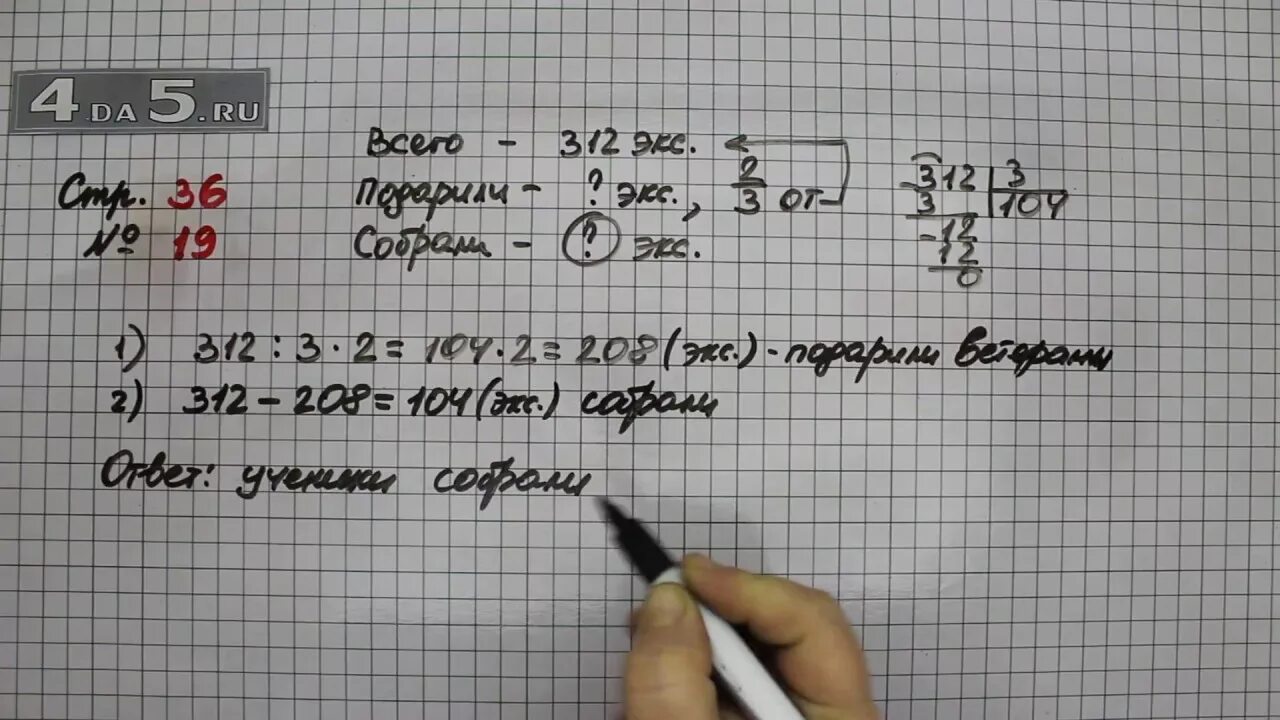 4DA5.RU
Стр. 36
№ 19
Всего - 312 экс.
Подарили - ? экс., 2/3 от
Собрали - ? экс.
312 | 3
3 | 104
-12
12
0
1) 312 : 3 · 2 = 104 · 2 = 208 (экс.) - подарили ветераны
2) 312 - 208 = 104 (экс.) собрали
Ответ: ученики собрали